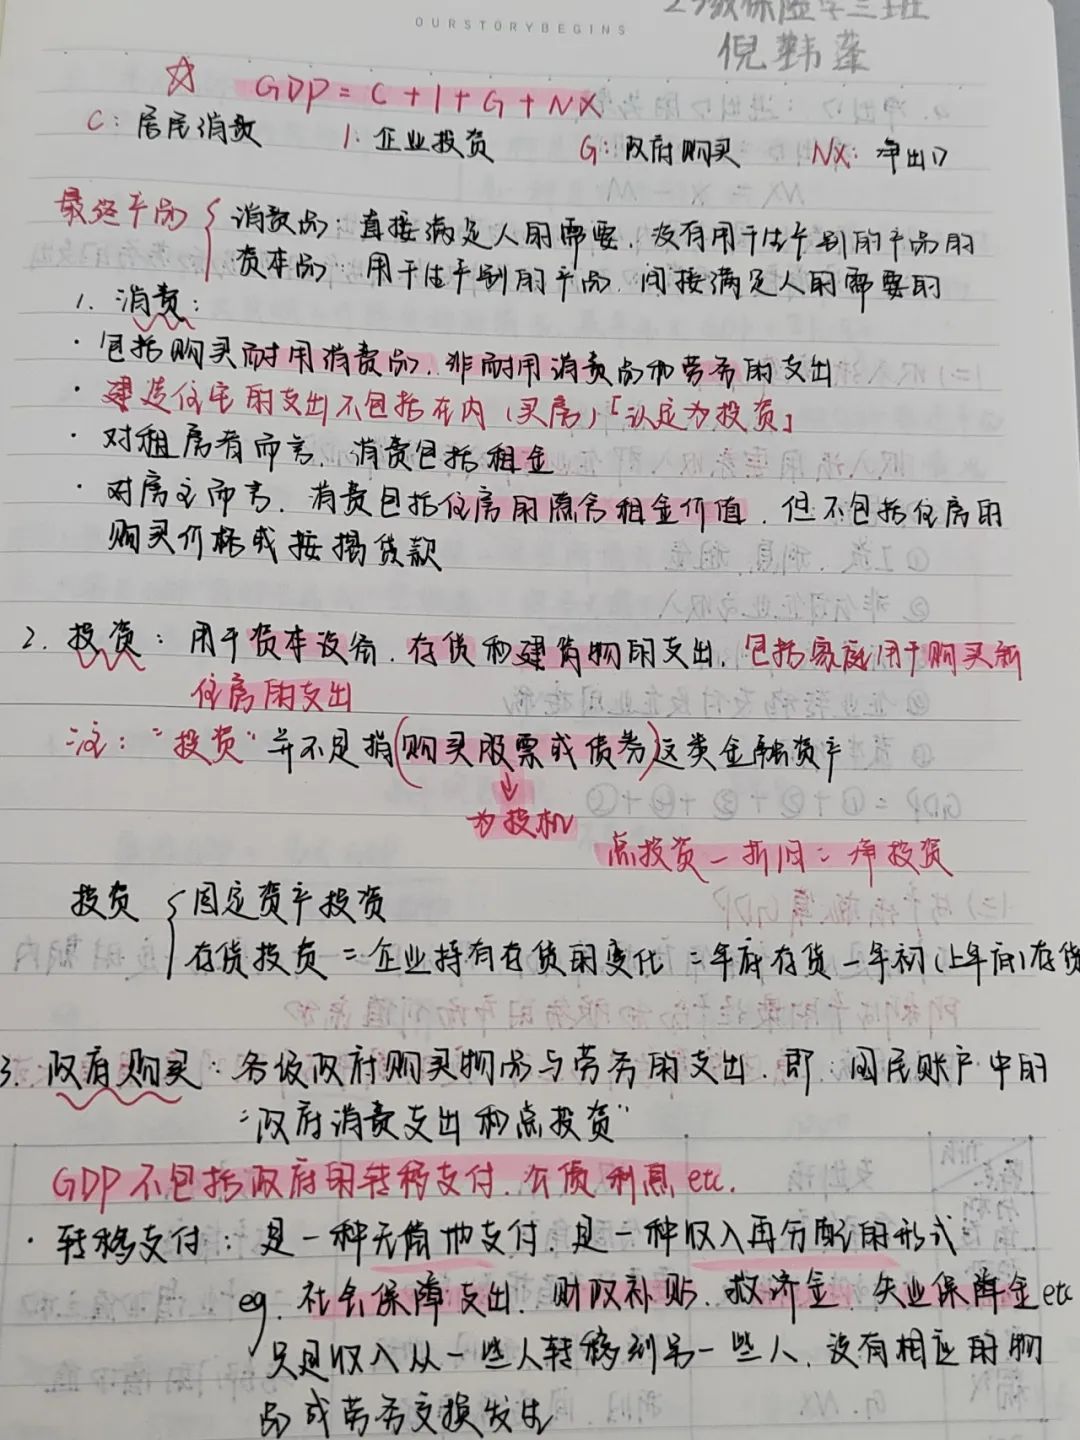 OURSTORYBEGINS
23级保险学三班
倪韩蓬
☆ GDP = C + I + G + NX
C: 居民消费 I: 企业投资 G: 政府购买 NX: 净出口
最终产品 { 消费品: 直接满足人的需要, 没有用于生产别的产品的
资本品: 用于生产别的产品, 间接满足人的需要的
1. 消费:
· 包括购买耐用消费品, 非耐用消费品和劳务的支出
· 建造住宅的支出不包括在内 (买房)「认定为投资」
· 对租房者而言, 消费包括租金
· 对房主而言, 消费包括住房的隐含租金价值, 但不包括住房的
购买价格或按揭贷款
2. 投资: 用于资本设备, 存货和建筑物的支出, 包括家庭用于购买新
住房的支出
注: "投资" 并不是指(购买股票或债券)这类金融资产
↓
为投机
总投资 - 折旧 = 净投资
投资 { 固定资产投资
存货投资 = 企业持有存货的变化 = 年底存货 - 年初(上年底)存货
3. 政府购买: 各级政府购买物品与劳务的支出, 即: 国民账户中的
"政府消费支出和总投资"
GDP不包括政府的转移支付, 公债利息 etc.
· 转移支付: 是一种无偿地支付, 是一种收入再分配的形式
eg. 社会保障支出, 财政补贴, 救济金, 失业保障金 etc
只是收入从一些人转移到另一些人, 没有相应的物
品或劳务交换发生